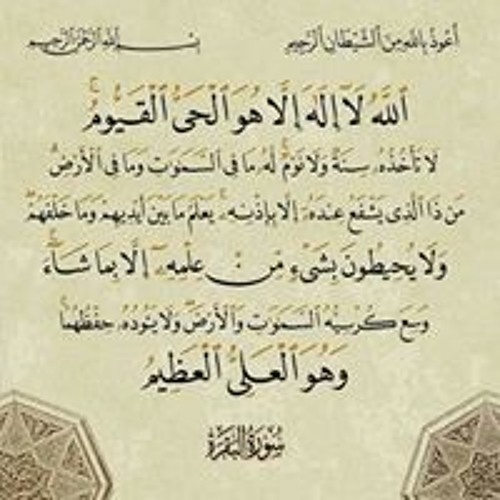 أعوذ بالله من الشيطان الرجيم بسم الله الرحمن الرحيم
ٱللَّهُ لَآ إِلَٰهَ إِلَّا هُوَ ٱلْحَىُّ ٱلْقَيُّومُ ۚ
لَا تَأْخُذُهُۥ سِنَةٌ وَلَا نَوْمٌ ۚ لَّهُۥ مَا فِى ٱلسَّمَٰوَٰتِ وَمَا فِى ٱلْأَرْضِ ۗ
مَن ذَا ٱلَّذِى يَشْفَعُ عِندَهُۥٓ إِلَّا بِإِذْنِهِۦ ۚ يَعْلَمُ مَا بَيْنَ أَيْدِيهِمْ وَمَا خَلْفَهُمْ ۖ
وَلَا يُحِيطُونَ بِشَىْءٍ مِّنْ عِلْمِهِۦٓ إِلَّا بِمَا شَآءَ ۚ
وَسِعَ كُرْسِيُّهُ ٱلسَّمَٰوَٰتِ وَٱلْأَرْضَ ۖ وَلَا يَـُٔودُهُۥ حِفْظُهُمَا ۚ
وَهُوَ ٱلْعَلِىُّ ٱلْعَظِيمُ
سُورَةُ البَقَرَةِ